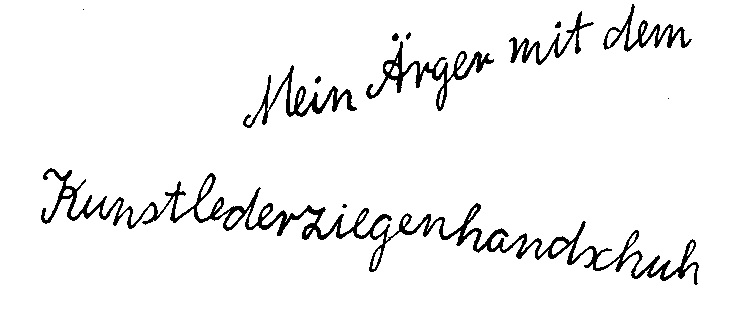 Mein Ärger mit dem
Kunstlederziegenhandschuh